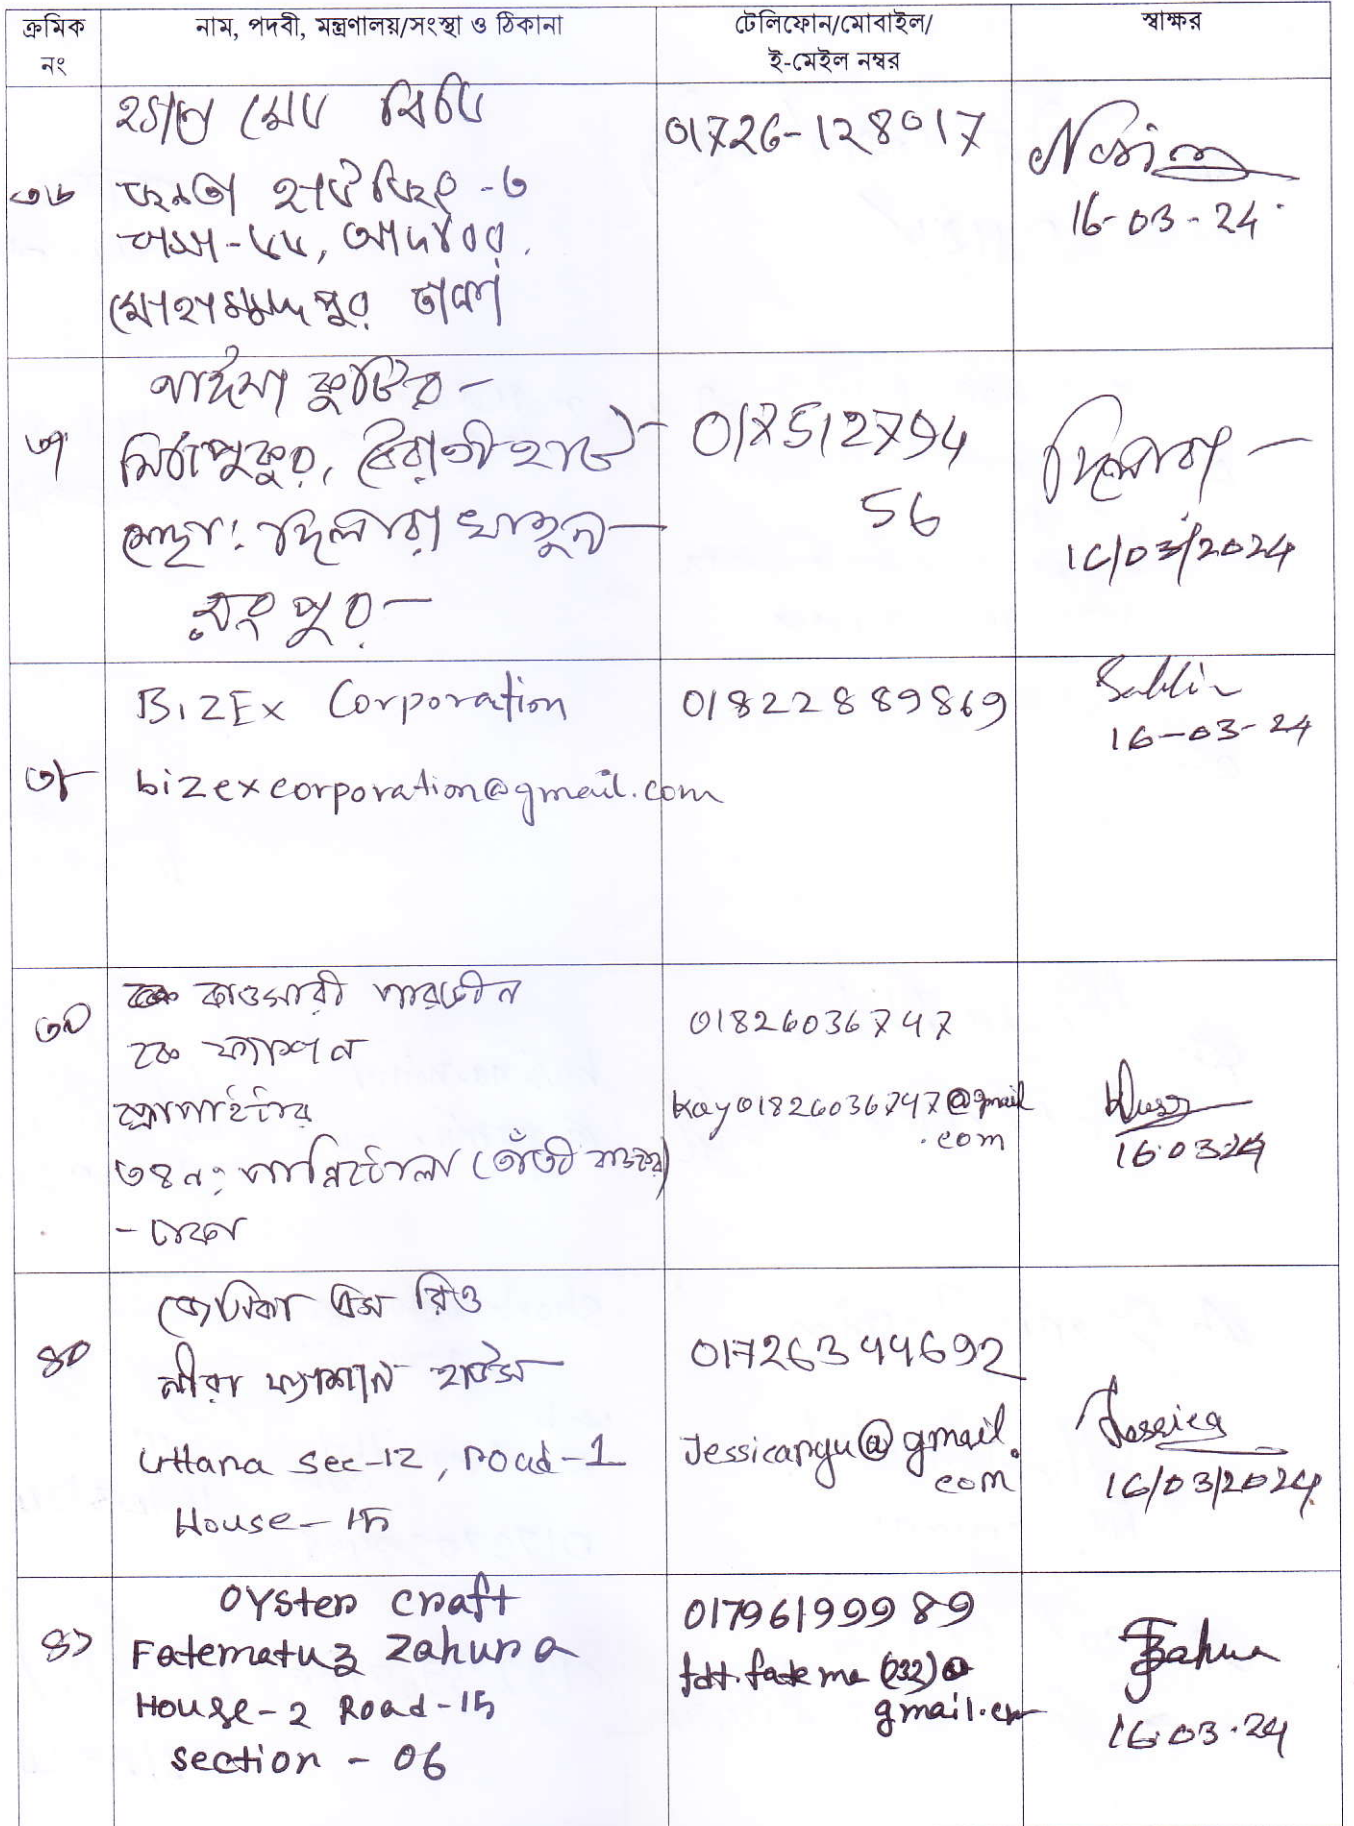 ক্রমিক নং
নাম, পদবী, মন্ত্রণালয়/সংস্থা ও ঠিকানা
টেলিফোন/মোবাইল/
ই-মেইল নম্বর
স্বাক্ষর
৩৬
জনতা হাউজিং -৩
বাসা- , আদাবর,
মোহাম্মদপুর ঢাকা
01726-128017
16-03-24
৩৭
কুটির-
মিঠাপুকুর, বৈরাতী হাট
মোছা: দিলারা খাতুন
রংপুর-
017512794
56
দিলারা
16/03/2024
৩৮
BIZEx Corporation
bizexcorporation@gmail.com
01822889869
16-03-24
৩৯
কাওসারী পারভীন
কে ফ্যাশন
প্রোপাইটার
৩৪নং পান্নিটোলা (তাঁতী বাজার)
- ঢাকা
01826036747
kay01826036747@gmail
.com
16.03.24
৪০
জেসিকা এস রিও
নীরা ফ্যাশান হাউস
Uttara sec-12, road-1
House-15
01726344692
Jessicargu@gmail.
com
Jessica
16/03/2024
৪১
Oyster Craft
Fatematuz Zahura
House-2 Road-15
Section - 06
01796199989
fdt.fatema(232)@
gmail.com
Zahura
16.03.24